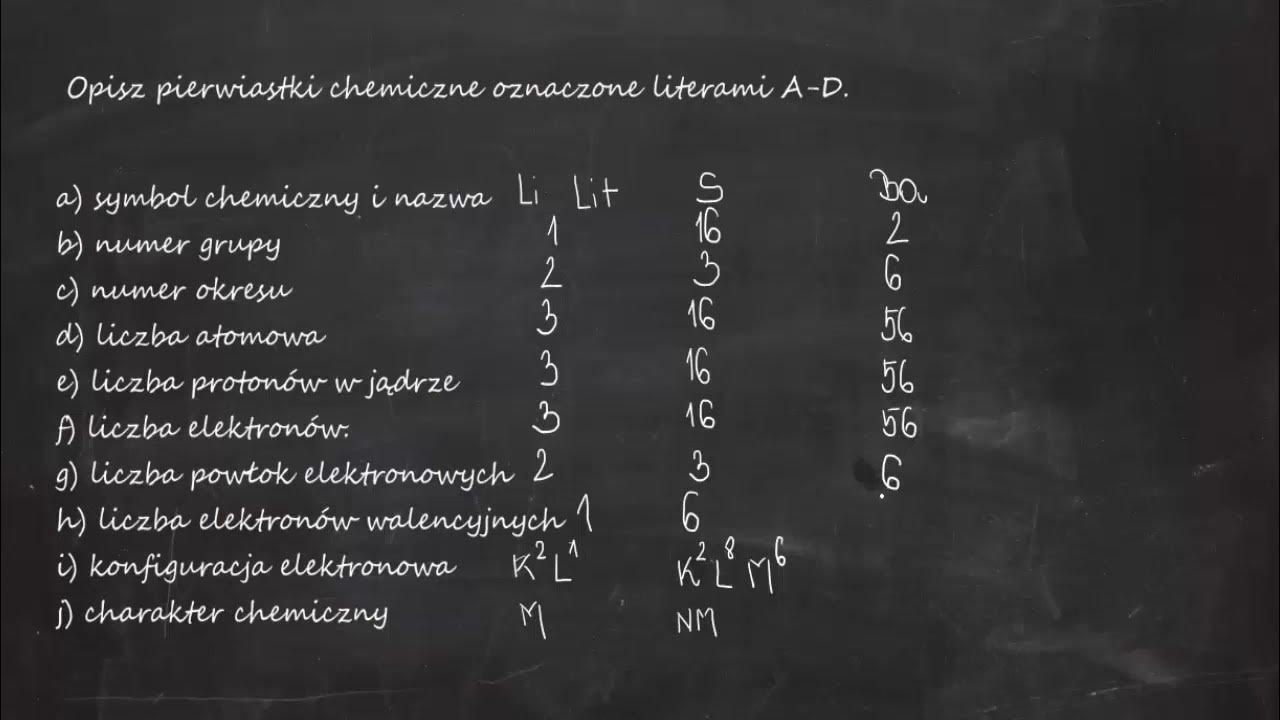 Opisz pierwiastki chemiczne oznaczone literami A-D.
a) symbol chemiczny i nazwa Li Lit S Ba
b) numer grupy 1 16 2
c) numer okresu 2 3 6
d) liczba atomowa 3 16 56
e) liczba protonów w jądrze 3 16 56
f) liczba elektronów. 3 16 56
g) liczba powłok elektronowych 2 3 6
h) liczba elektronów walencyjnych 1 6
i) konfiguracja elektronowa K² L¹ K² L⁸ M⁶
j) charakter chemiczny M NM